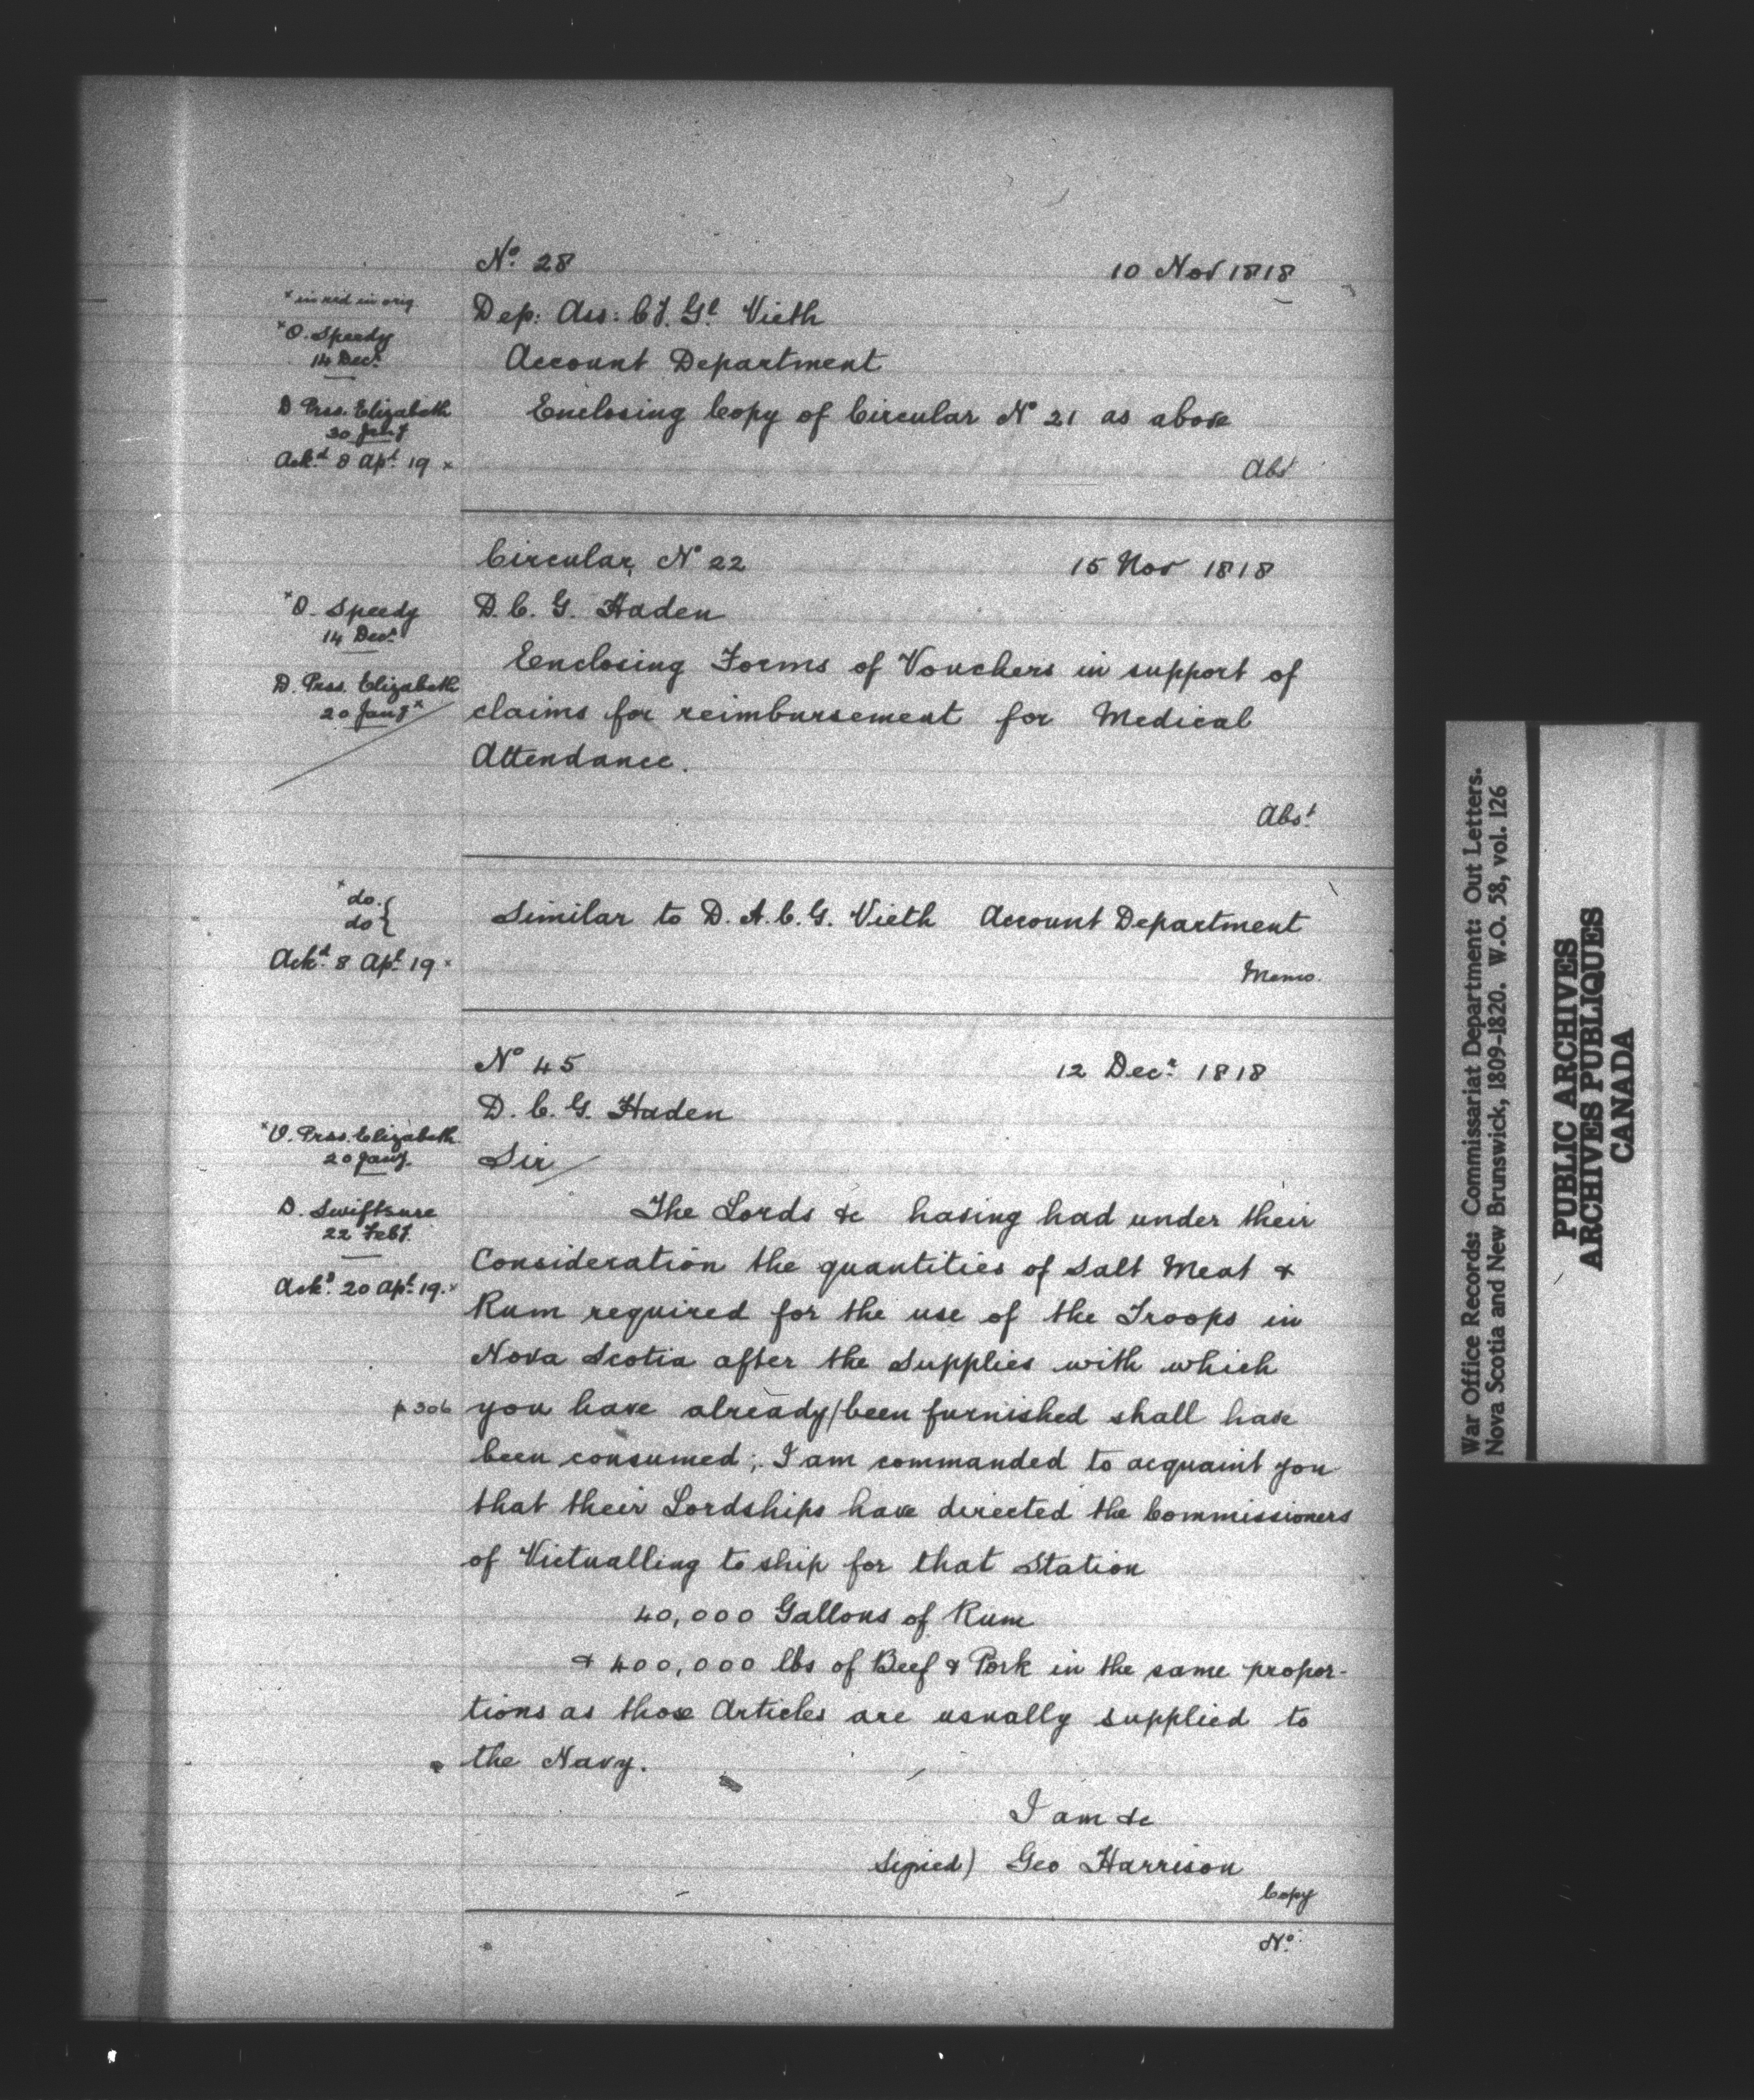 No. 28 10 Nov 1818
* in red in orig.
Dep: Ass: C.y. Gl Vieth
*O. Speedy
14 Decr.
Account Department
D Prss. Elizabeth
20 Jany
Enclosing Copy of Circular No 21 as above
Ackd 8 Apl. 19 x
Abst
Circular No 22 15 Nov 1818
*O. Speedy
14 Decr.
D. C. G. Haden
D. Prss. Elizabeth
20 Jany x
Enclosing Forms of Vouchers in support of
claims for reimbursement for Medical
Attendance.
Abst.
* do. {
do {
Similar to D. A. C. G. Vieth Account Department
Ackd. 8 Apl. 19 x
Memo.
No 45 12 Decr. 1818
D. C. G. Haden
*O. Prss. Elizabeth
20 Jany.
Sir/
D. Swiftsure
22 Feby.
The Lords &c having had under their
Consideration the quantities of Salt Meat &
Ackd. 20 Apl. 19. x
Rum required for the use of the Troops in
Nova Scotia after the Supplies with which
p 306
you have already/been furnished shall have
been consumed; I am commanded to acquaint you
that their Lordships have directed the Commissioners
of Victualling to ship for that Station
40,000 Gallons of Rum
& 400,000 lbs of Beef & Pork in the same propor-
tions as those Articles are usually supplied to
the Navy.
I am &c
Signed) Geo Harrison
Copy
No.
War Office Records: Commissariat Department: Out Letters.
Nova Scotia and New Brunswick, 1809-1820. W.O. 58, vol. 126
PUBLIC ARCHIVES
ARCHIVES PUBLIQUES
CANADA